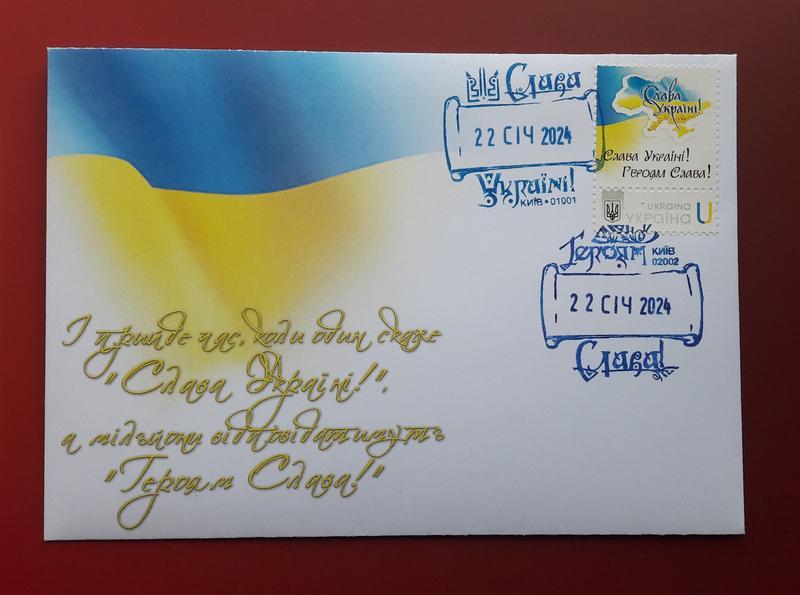 Слава
22 СІЧ 2024
Україні!
КИЇВ • 01001
Слава
Україні!
Слава Україні!
Героям Слава!
UKRAINA
УКРАЇНА U
Героям КИЇВ
02002
22 СІЧ 2024
Слава!
І прийде час, коли один скаже
"Слава Україні!",
а мільйони відповідатимуть
"Героям Слава!"